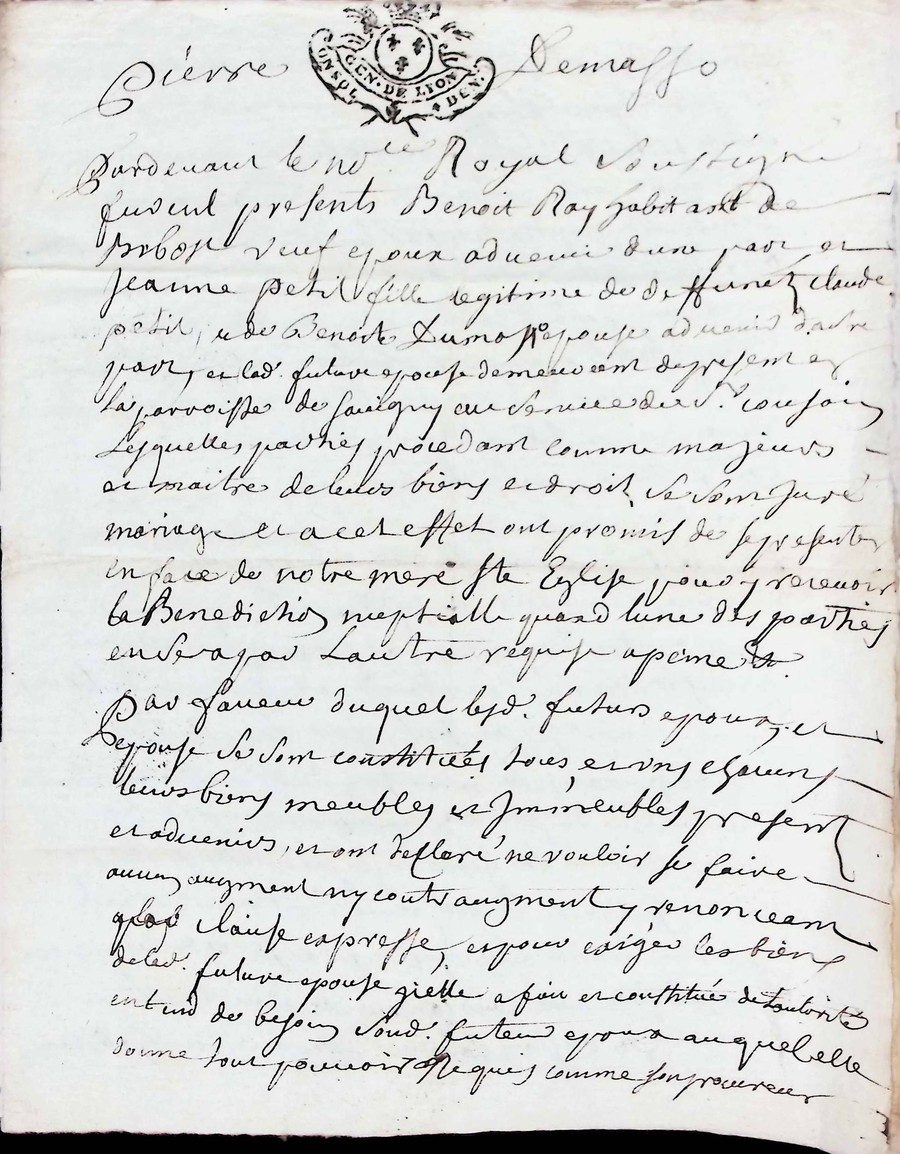 Pierre Demasso
GEN. DE LYON
UN SOL 4 DEN.
Pardevant le nore Royal Soussigne
furent presents Benoit Ray habitant de
Bibost veuf epoux advenir dune part et
Jeanne petit fille legitime de deffunct claude
petit, et de Benoite Dumas epouse advenir dautre
part, et lad. future epouse demeurant de present en
la parroisse de Savigny au Service du Sr. cousin
Lesquelles parties procedant comme majeurs
et maitre de leurs biens et droit, se sont Juré
mariage et a cet effet ont promis de se presenter
en face de notre mere Ste Eglise pour y recevoir
la Benediction nuptialle quand lune des parties
en Sera par Lautre requise a peine &
Par faveur duquel lesd. futurs epoux, et
epouse se sont constitués tous, et uns chacuns
leurs biens meubles et Immeubles present
et advenirs, et ont declaré ne vouloir se faire
aucun augment ny contraugment y renonceant
clause expresse, et pour exiger les biens
de lad. future epouse et constitué de Lautorité
entend de besoin dud. futeur epoux auquel elle
donne tout pouvoir Requis comme son procureur